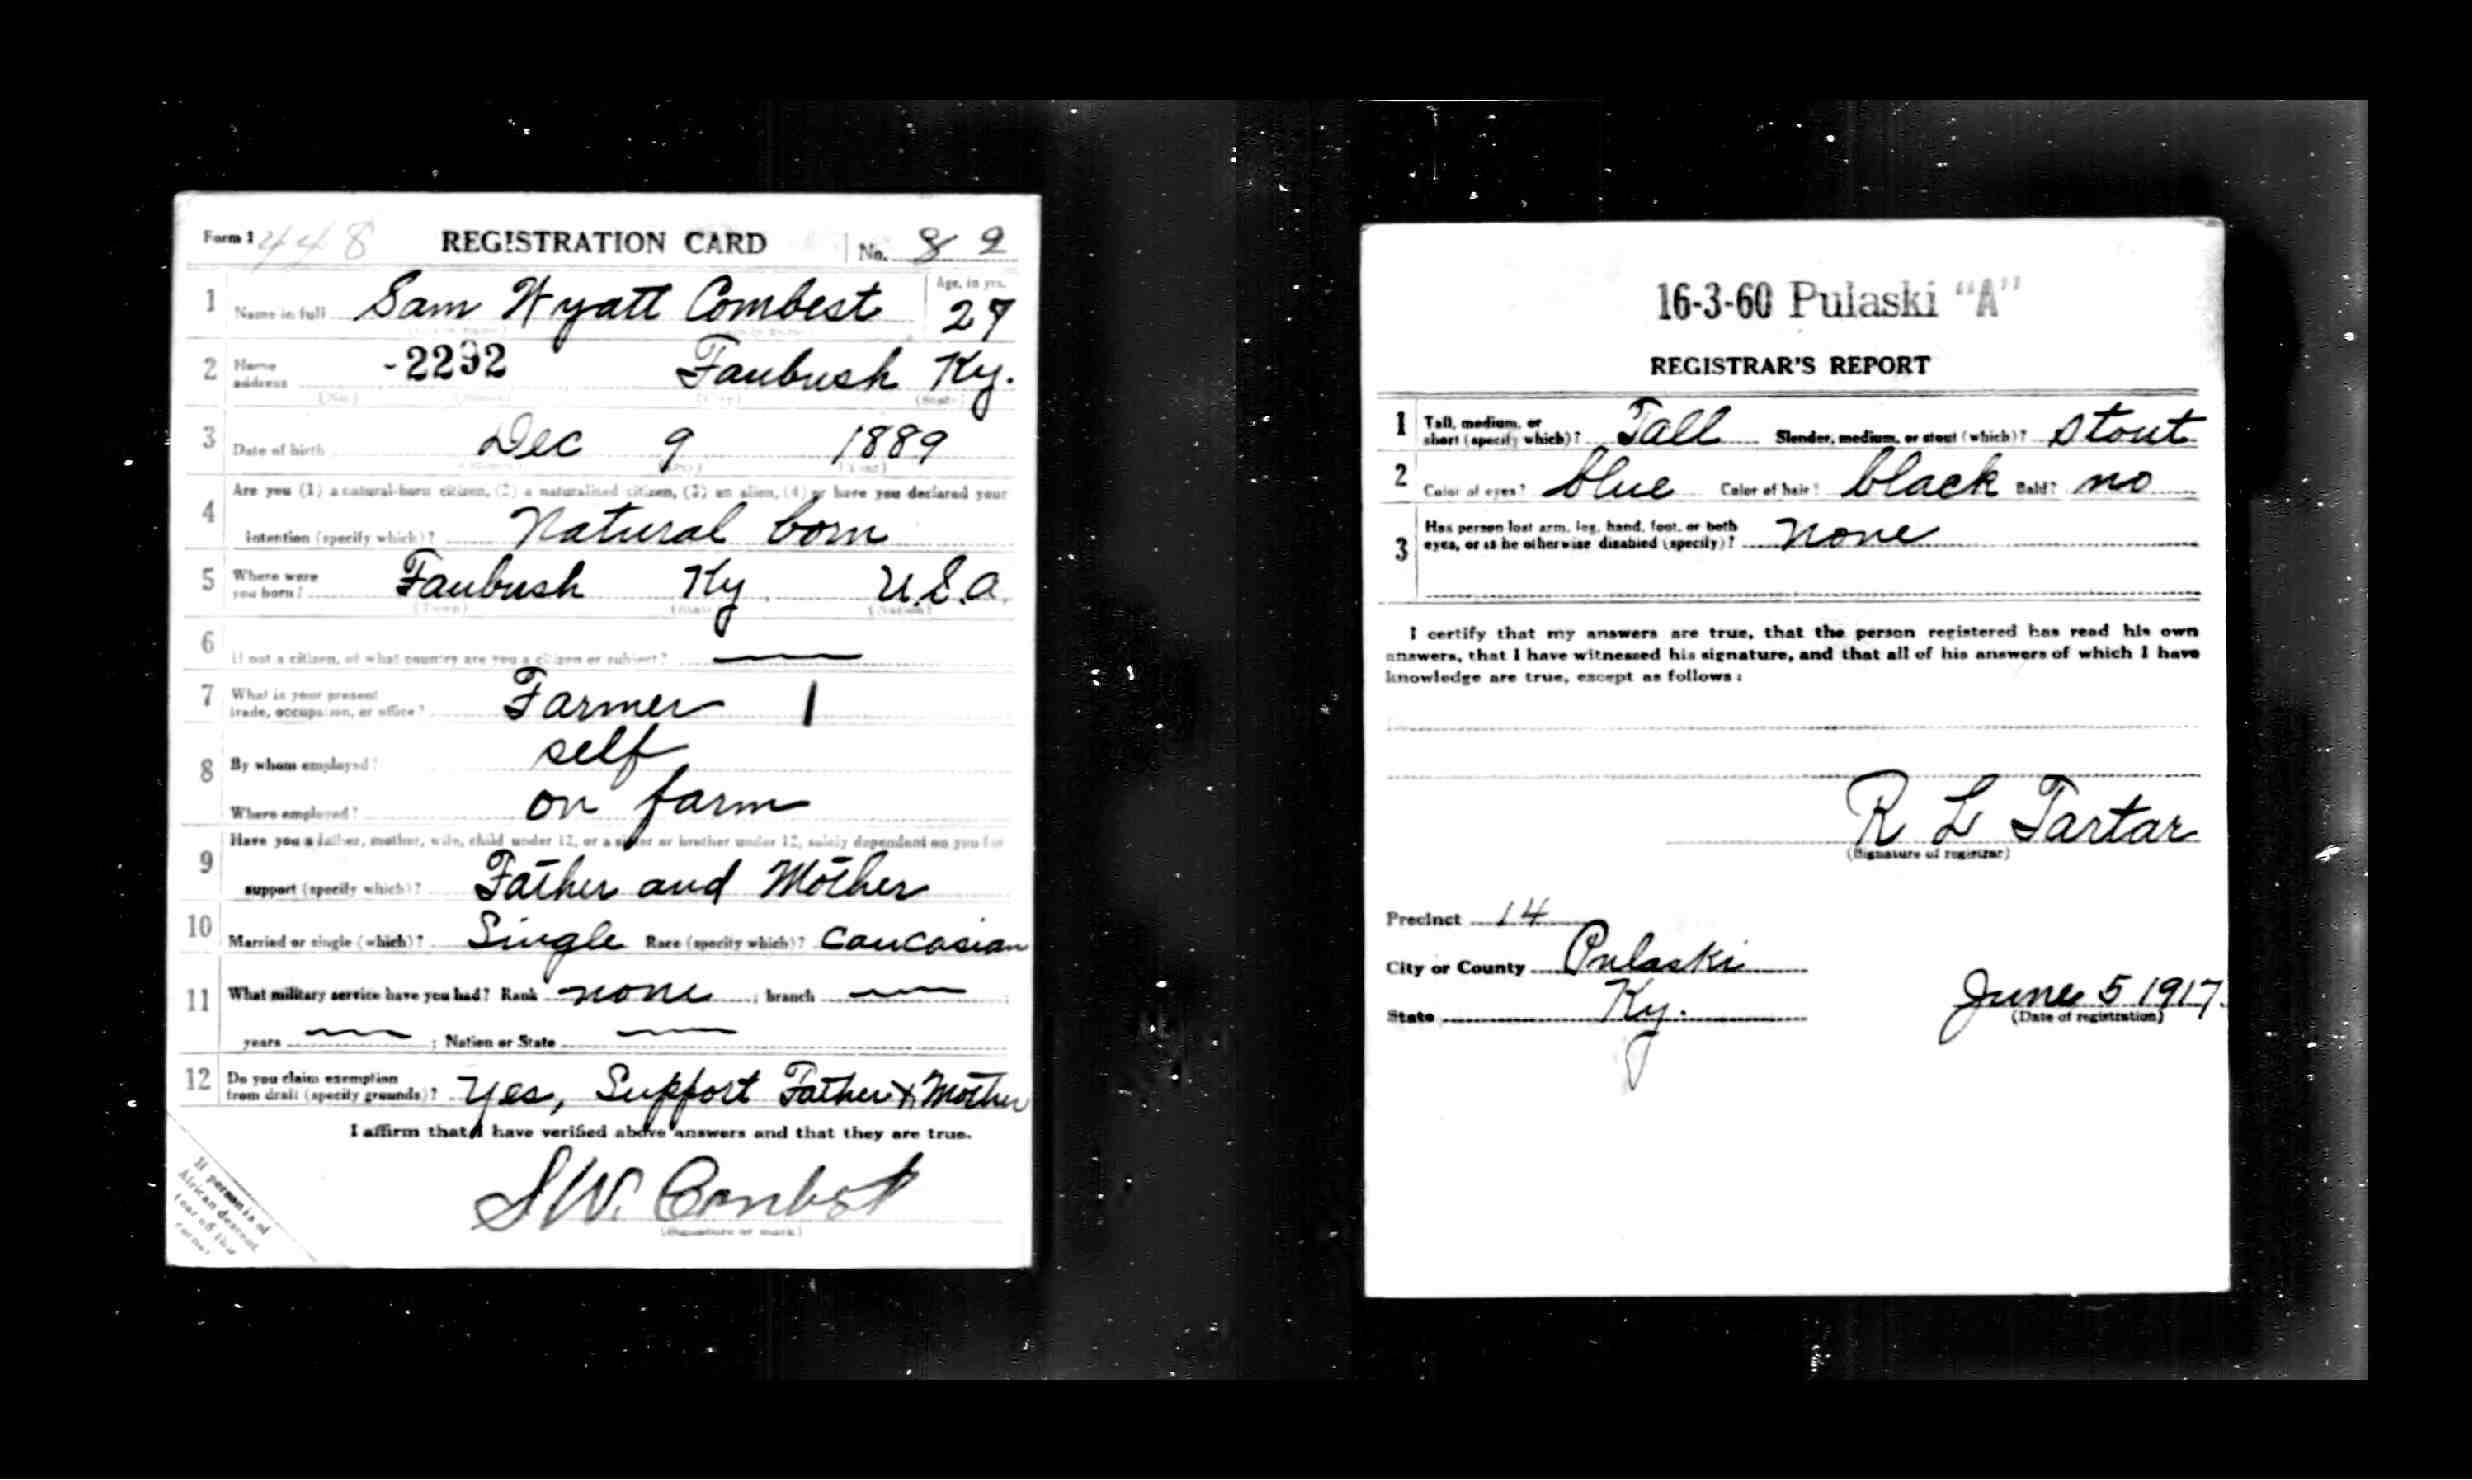 Form 1 448 REGISTRATION CARD No. 82
1 Name in full Sam Wyatt Combest Age, in yrs. 27
2 Home address -2292 Faubush Ky.
(No.) (Street) (City) (State)
3 Date of birth Dec 9 1889
(Month) (Day) (Year)
4 Are you (1) a natural-born citizen, (2) a naturalized citizen, (3) an alien, (4) or have you declared your
intention (specify which)? Natural born
5 Where were you born? Faubush Ky U.S.A.
(Town) (State) (Nation)
6 If not a citizen, of what country are you a citizen or subject?
7 What is your present trade, occupation, or office? Farmer 1
8 By whom employed? self
Where employed? on farm
9 Have you a father, mother, wife, child under 12, or a sister or brother under 12, solely dependent on you for
support (specify which)? Father and Mother
10 Married or single (which)? Single Race (specify which)? Caucasian
11 What military service have you had? Rank none ; branch
years ; Nation or State
12 Do you claim exemption from draft (specify grounds)? Yes, Support Father & Mother
I affirm that I have verified above answers and that they are true.
S W. Combest
(Signature or mark)
If person is of
African descent,
tear off this
corner
16-3-60 Pulaski "A"
REGISTRAR'S REPORT
1 Tall, medium, or short (specify which)? Tall Slender, medium, or stout (which)? Stout
2 Color of eyes? blue Color of hair? black Bald? no
3 Has person lost arm, leg, hand, foot, or both
eyes, or is he otherwise disabled (specify)? none
I certify that my answers are true, that the person registered has read his own
answers, that I have witnessed his signature, and that all of his answers of which I have
knowledge are true, except as follows:
R L Tartar
(Signature of registrar)
Precinct 14
City or County Pulaski
State Ky. June 5 1917.
(Date of registration)